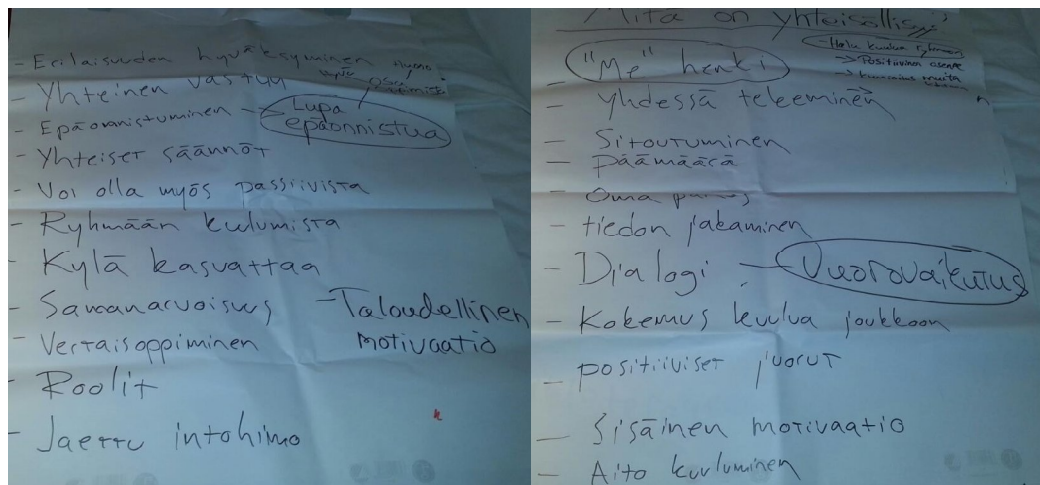 - Erilaisuuden hyväksyminen
- Yhteinen vastuu
- Epäonnistuminen → Lupa epäonnistua
- Yhteiset säännöt
- Voi olla myös passiivista
- Ryhmään kuulumista
- Kylä kasvattaa
- Samanarvoisuus
- Taloudellinen motivaatio
- Vertaisoppiminen
- Roolit
- Jaettu intohimo
Mitä on yhteisöllisyys?
- "Me" henki
- Halu kuulua
→ Positiivinen asenne
- yhdessä tekeeminen
- Sitoutuminen
- päämäärä
- Oma
- tiedon jakaminen
- Dialogi - Vuorovaikutus
- Kokemus kuulua joukkoon
- positiiviset juorut
- Sisäinen motivaatio
- Aito kuuluminen